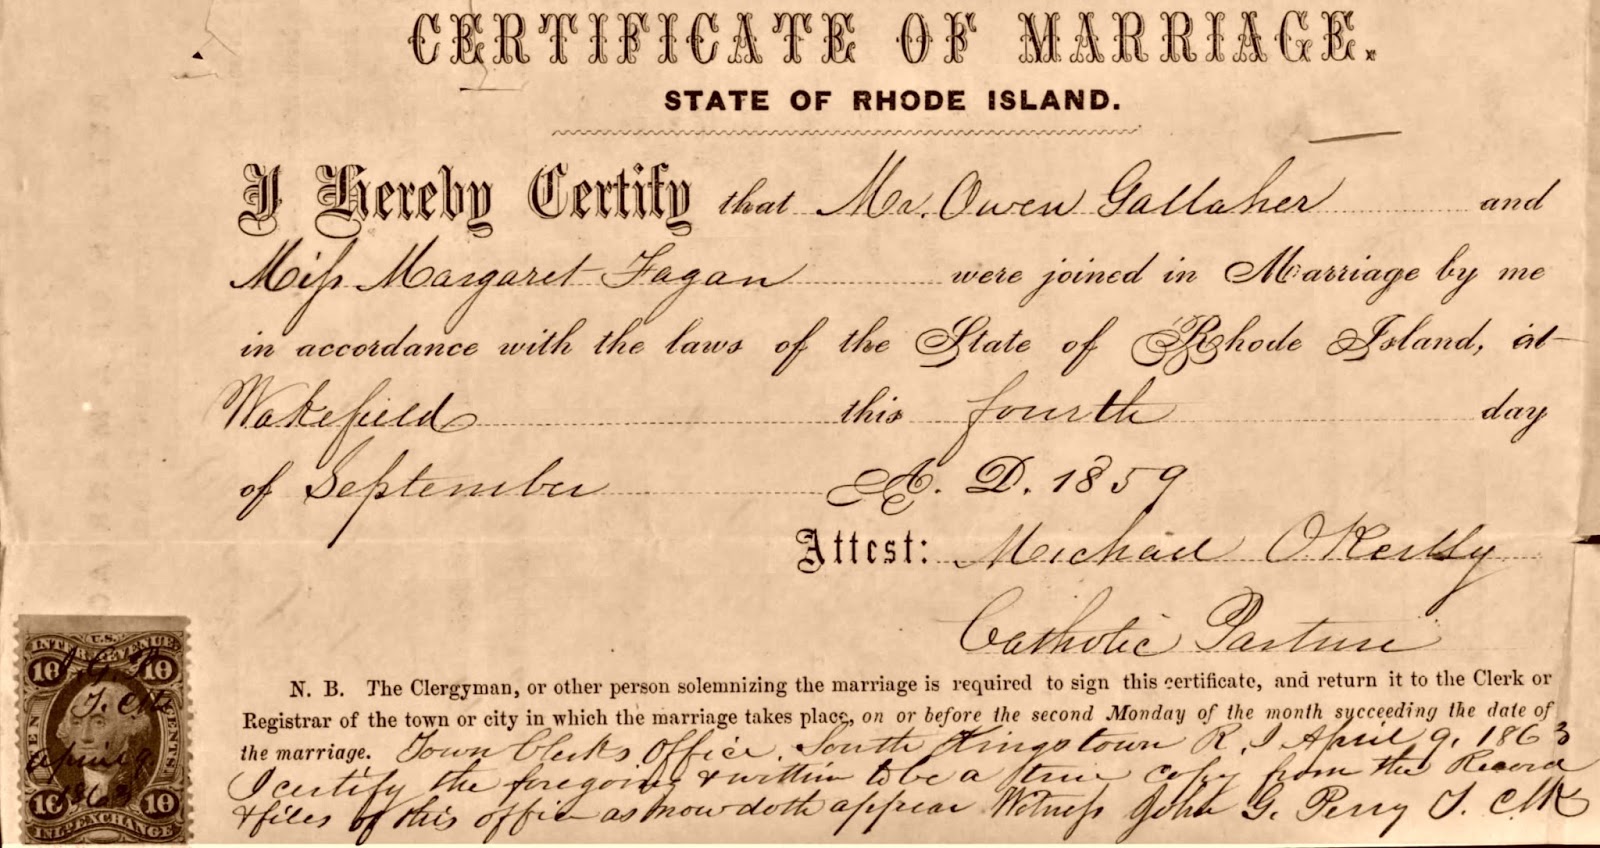 CERTIFICATE OF MARRIAGE.
STATE OF RHODE ISLAND.
I Hereby Certify that Mr. Owen Gallaher and
Miss Margaret Fagan were joined in Marriage by me
in accordance with the laws of the State of Rhode Island, at
Wakefield this fourth day
of September A. D. 1859
Attest: Michael O Reilly
Catholic Pasture
N. B. The Clergyman, or other person solemnizing the marriage is required to sign this certificate, and return it to the Clerk or
Registrar of the town or city in which the marriage takes place, on or before the second Monday of the month succeeding the date of
the marriage. Town Clerks Office. South Kingstown R. I April 9, 1863
I certify the foregoing & within to be a true copy from the Record
& files of this office as now doth appear Witness John G. Perry T. Clk
U.S.
INTER. REVENUE
10 10
J. G. P.
T. Clk
TEN CENTS
April 9
1863
10 10
INL. EXCHANGE